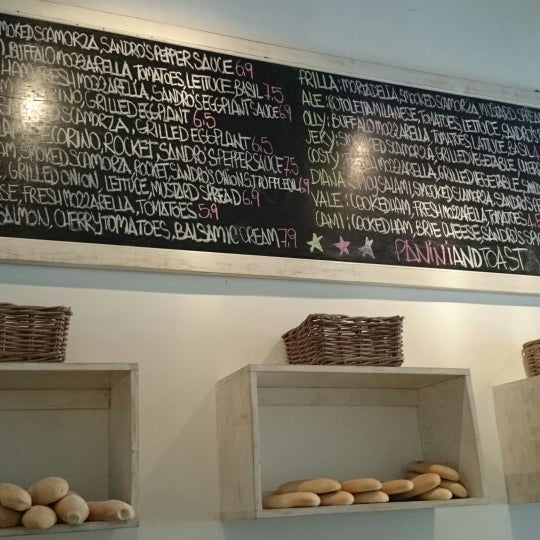 SMOKED SCAMORZA, SANDRO'S PEPPER SAUCE 6,9
BUFFALO MOZZARELLA, TOMATOES, LETTUCE, BASIL 7.5
HAM, FRESH MOZZARELLA, SANDRO'S EGGPLANT SAUCE 6,9
GRILLED EGGPLANT 6.5
SCAMORZA, GRILLED EGGPLANT 6.5
PECORINO, ROCKET, SANDRO'S PEPPER SAUCE 7.5
SMOKED SCAMORZA, ROCKET, SANDRO'S ONIONS, TRUFFLE OIL
GRILLED ONION, LETTUCE, MUSTARD SPREAD 6,9
FRESH MOZZARELLA, TOMATOES 5,9
SALMON, CHERRY TOMATOES, BALSAMIC CREAM 7,9
PRILLA: MORTADELLA, SMOCKED SCAMORZA, MUSTARD SPREAD
ALE: KOTOLETTA MILANESE, TOMATOES, LETTUCE, SANDRO'S
OLLY: BUFFALO MOZZARELLA, TOMATOES, LETTUCE, BASIL
JERY:
COSTY: MOZZARELLA, GRILLED VEGETABLE, SANDRO'S
DIANA: SALAMI, SMOCKED SCAMORZA, SANDRO'S
VALE: COOKED HAM, FRESH MOZZARELLA, TOMATOES
CAMI: COOKED HAM, BRIE CHEESE, SANDRO'S
PANINI AND TOAST